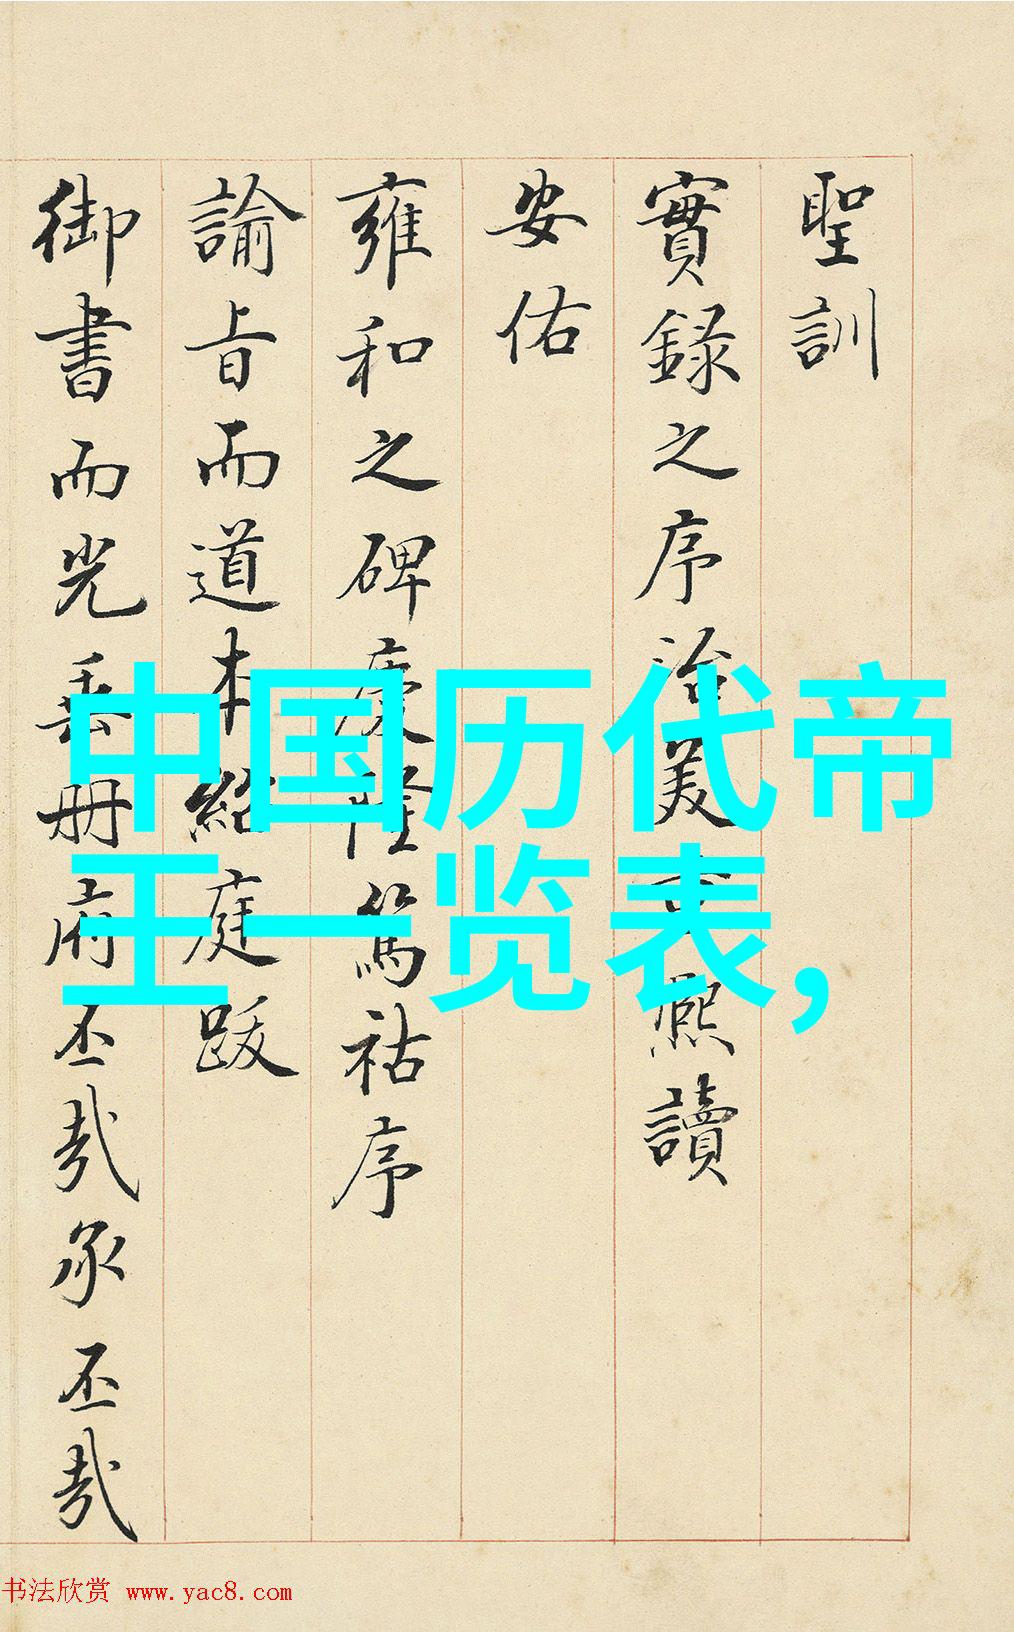 聖訓
實録之序治美熙讀
安佑
雍和之碑慶隆篤祜序
諭旨而道本紹庭跋
御書而光垂册府丕哉承丕哉
中国历代帝
王一览表,
书法欣赏 www.yac8.com